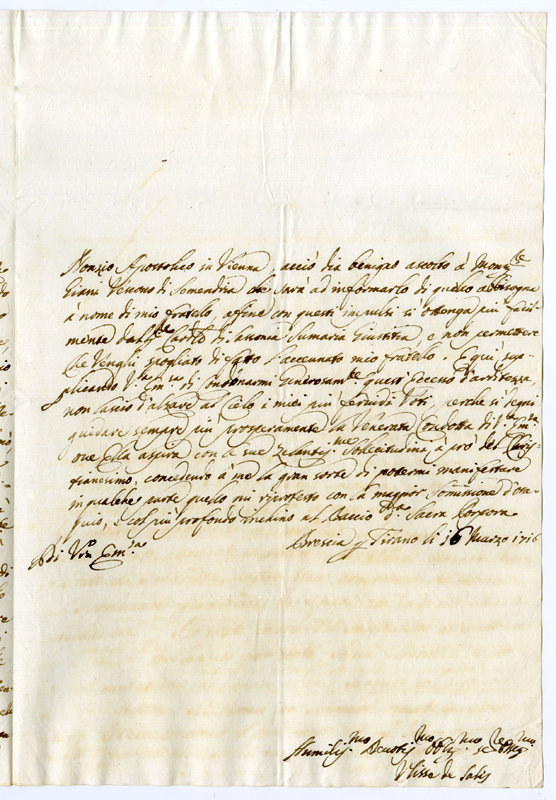 Nonzio Apostolico in Vienna, acciò dia benigno ascolto à Mons.re
Giani Vescovo di Somendria che sarà ad informarlo di quello abbisogna
à nome di mio fratelo, affine con questi impulsi si ottenga più facil-
mente dal Sig.r Card.le di Sassonia Sumaria Giustitia, e non permettere
che venghi spogliato di fatto l'accennato mio fratello. E quì sup-
plicando V.ra Em.za di condonarmi generosam.te quest'eccesso d'arditezza,
non lascio d'alzare al Cielo i miei più fervidi Voti, perche si degni
guidare sempre più prosperamente la Venerata Condotta di V.ra Em.za
ove Ella aspira con le sue zelantiss.me Solecitudini à pro del Chris-
tianesimo, concedendo à me la gran sorte di potermi manifestare
in qualche parte quello mi riprotesto con la maggior Somissione d'osse-
quio, e col più profondo inchino al Baccio d.a Sacra Porpora
Di V.ra Em.za
Brescia p Tirano li 16 Marzo 1716
Humiliss.mo Devotiss.mo Obblig.mo
Ulisse de Salis